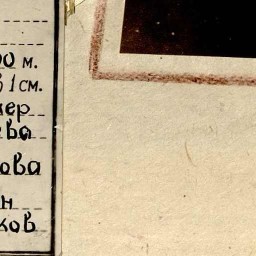 00 м.
в 1 см.
ер
ева
ова
н
ков